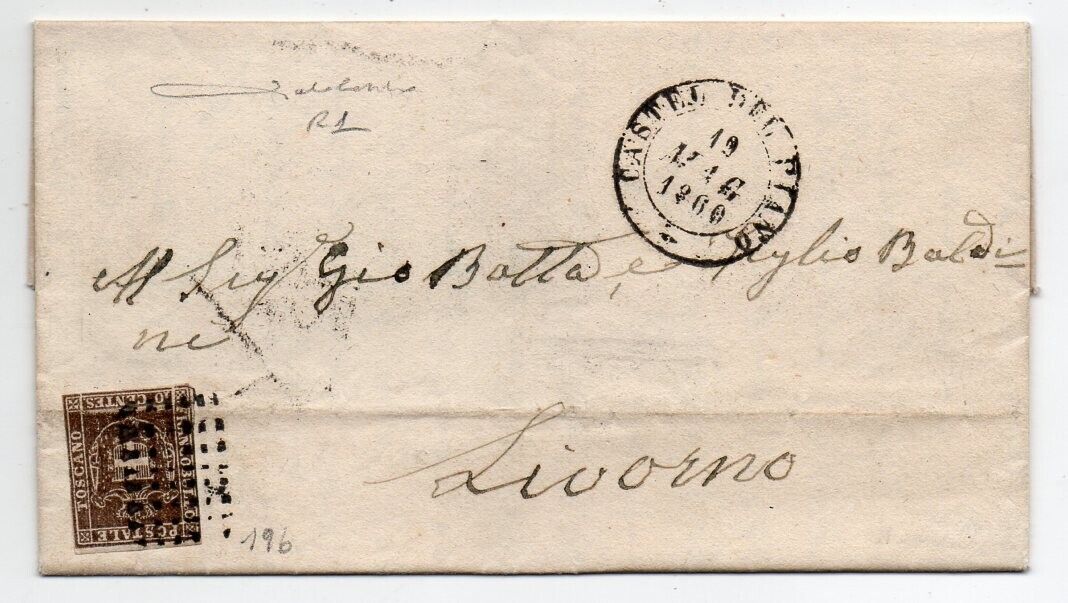 R1
CASTEL DEL PIANO
19
MAG
1860
Al Sig Gio Batta, e figlio Baldi=
ni
10 CENTES
FRANCOBOLLO
TOSCANO
POSTALE
Livorno
196